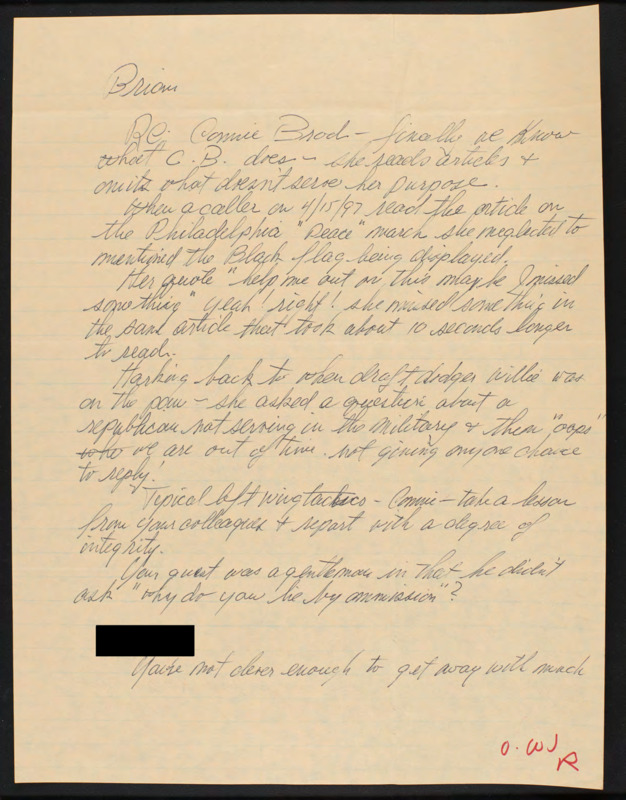 Brian
Re: Connie Brod - finally we know
what C. B. does - she reads articles &
omits what doesn't serve her purpose.
When a caller on 4/15/97 read the article on
the Philadelphia "Peace" march she neglected to
mentioned the Black flag being displayed.
Her quote "help me out on this maybe I missed
something" yeah! right! she missed something in
the same article that took about 10 seconds longer
to read.
Harking back to when draft dodger willie was
on the pan - she asked a question about a
republican not serving in the military & then "oops"
who we are out of time. not giving anyone chance
to reply!
Typical left wing - Connie - take a lesson
from your colleagues & report with a degree of
integrity.
Your guest was a gentleman in that he didn't
ask "why do you lie by ommission"?
You're not clever enough to get away with much
O. WJ
R